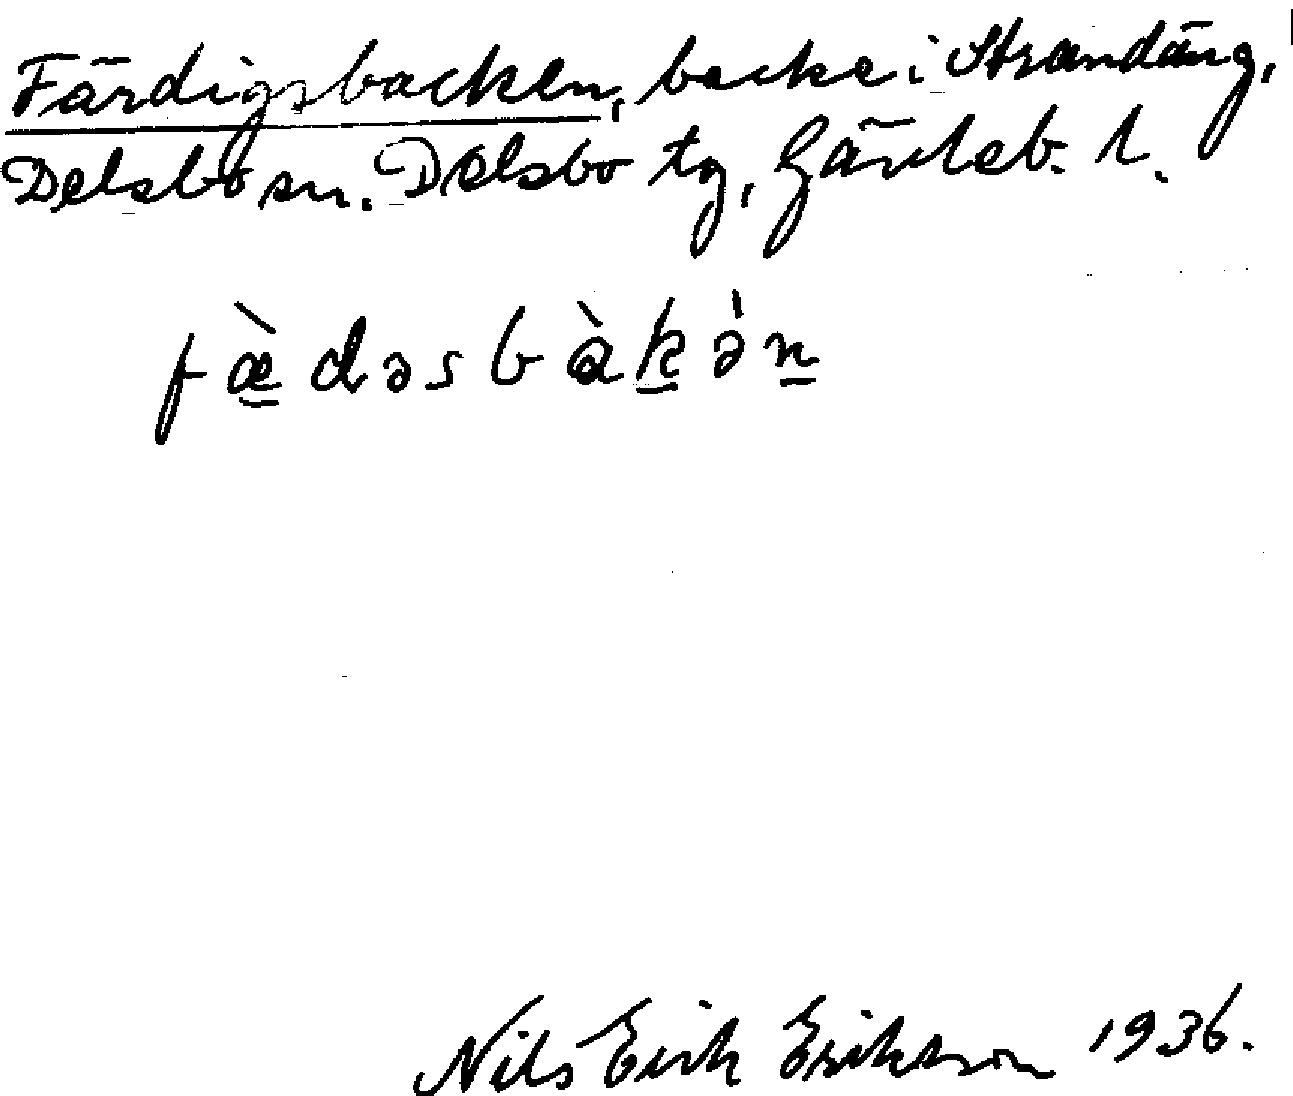 Färdigsbacken, backe i Strandäng,
Delsbo sn. Delsbo tg, Gävleb. l.
fæ̀dəsbàkə̀n
Nils Erik Erikson 1936.